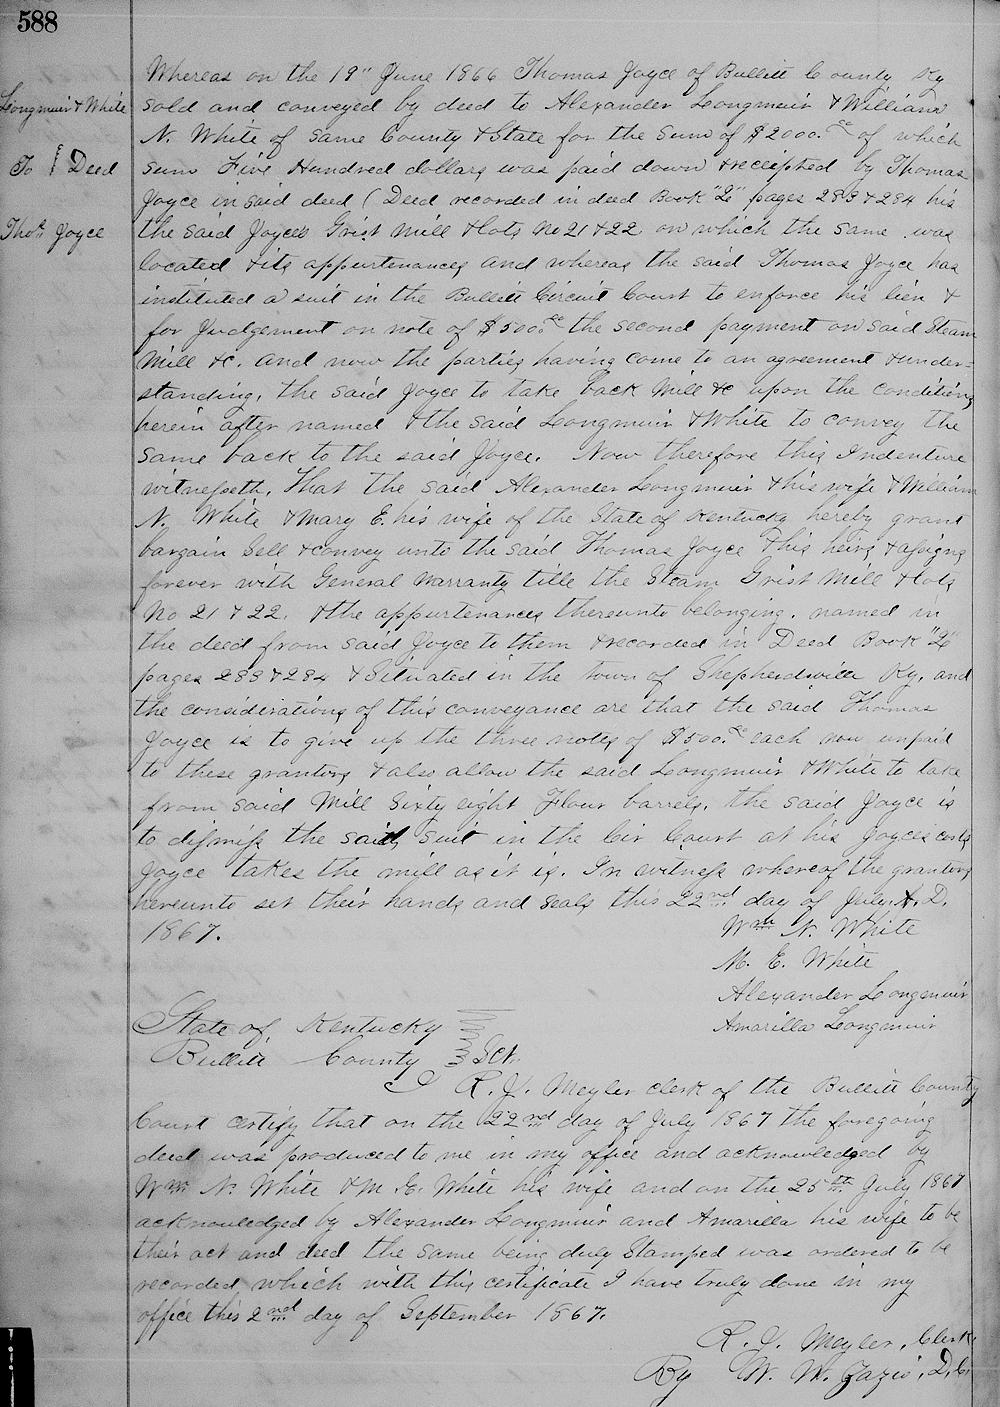 588
Longmuir & White
To } Deed
Thos. Joyce
Whereas on the 19" June 1866 Thomas Joyce of Bullitt County Ky
sold and conveyed by deed to Alexander Longmuir & William
N. White of same County & State for the sum of $2000.00 of which
sum Five Hundred dollars was paid down & receipted by Thomas
Joyce in said deed (Deed recorded in deed Book "L" pages 283 & 284 his
the said Joyces Grist Mill & lots No 21 & 22 on which the same was
located & its appurtenances and whereas the said Thomas Joyce has
instituted a suit in the Bullitt Circuit Court to enforce his lien &
for Judgement on note of $500.00 the second payment on said Steam
Mill &c. and now the parties having come to an agreement & under-
standing, the said Joyce to take back Mill &c upon the conditions
herein after named & the said Longmuir & White to convey the
same back to the said Joyce. Now therefore this Indenture
witnesseth, That the said Alexander Longmuir & his wife & William
N. White & Mary E. his wife of the State of Kentucky hereby grant
bargain Sell & convey unto the said Thomas Joyce & his heirs & assigns
forever with General Warranty title the Steam Grist Mill & lots
No 21 & 22. & the appurtenances thereunto belonging. named in
the deed from said Joyce to them & recorded in Deed Book "L"
pages 283 & 284 & Situated in the town of Shepherdsville Ky. and
the considerations of this conveyance are that the said Thomas
Joyce is to give up the three notes of $500.00 each now unpaid
to these grantors & also allow the said Longmuir & White to take
from said Mill Sixty eight Flour barrels. the said Joyce is
to dismiss the said suit in the Cir Court at his Joyces costs
Joyce takes the mill as it is. In witness whereof the grantors
hereunto set their hands and seals this 22nd day of July A. D.
1867.
Wm N. White
M. E. White
Alexander Longmuir
Amarilla Longmuir
State of Kentucky
Bullitt County } Sct.
I R. J. Meyler clerk of the Bullitt County
Court certify that on the 22nd day of July 1867 the foregoing
deed was produced to me in my office and acknowledged by
Wm N. White & M. E. White his wife and on the 25th July 1867
acknowledged by Alexander Longmuir and Amarilla his wife to be
their act and deed the same being duly Stamped was ordered to be
recorded, which with this certificate I have truly done in my
office this 2nd day of September 1867.
R. J. Meyler, Clerk
By W. W. , D.C.